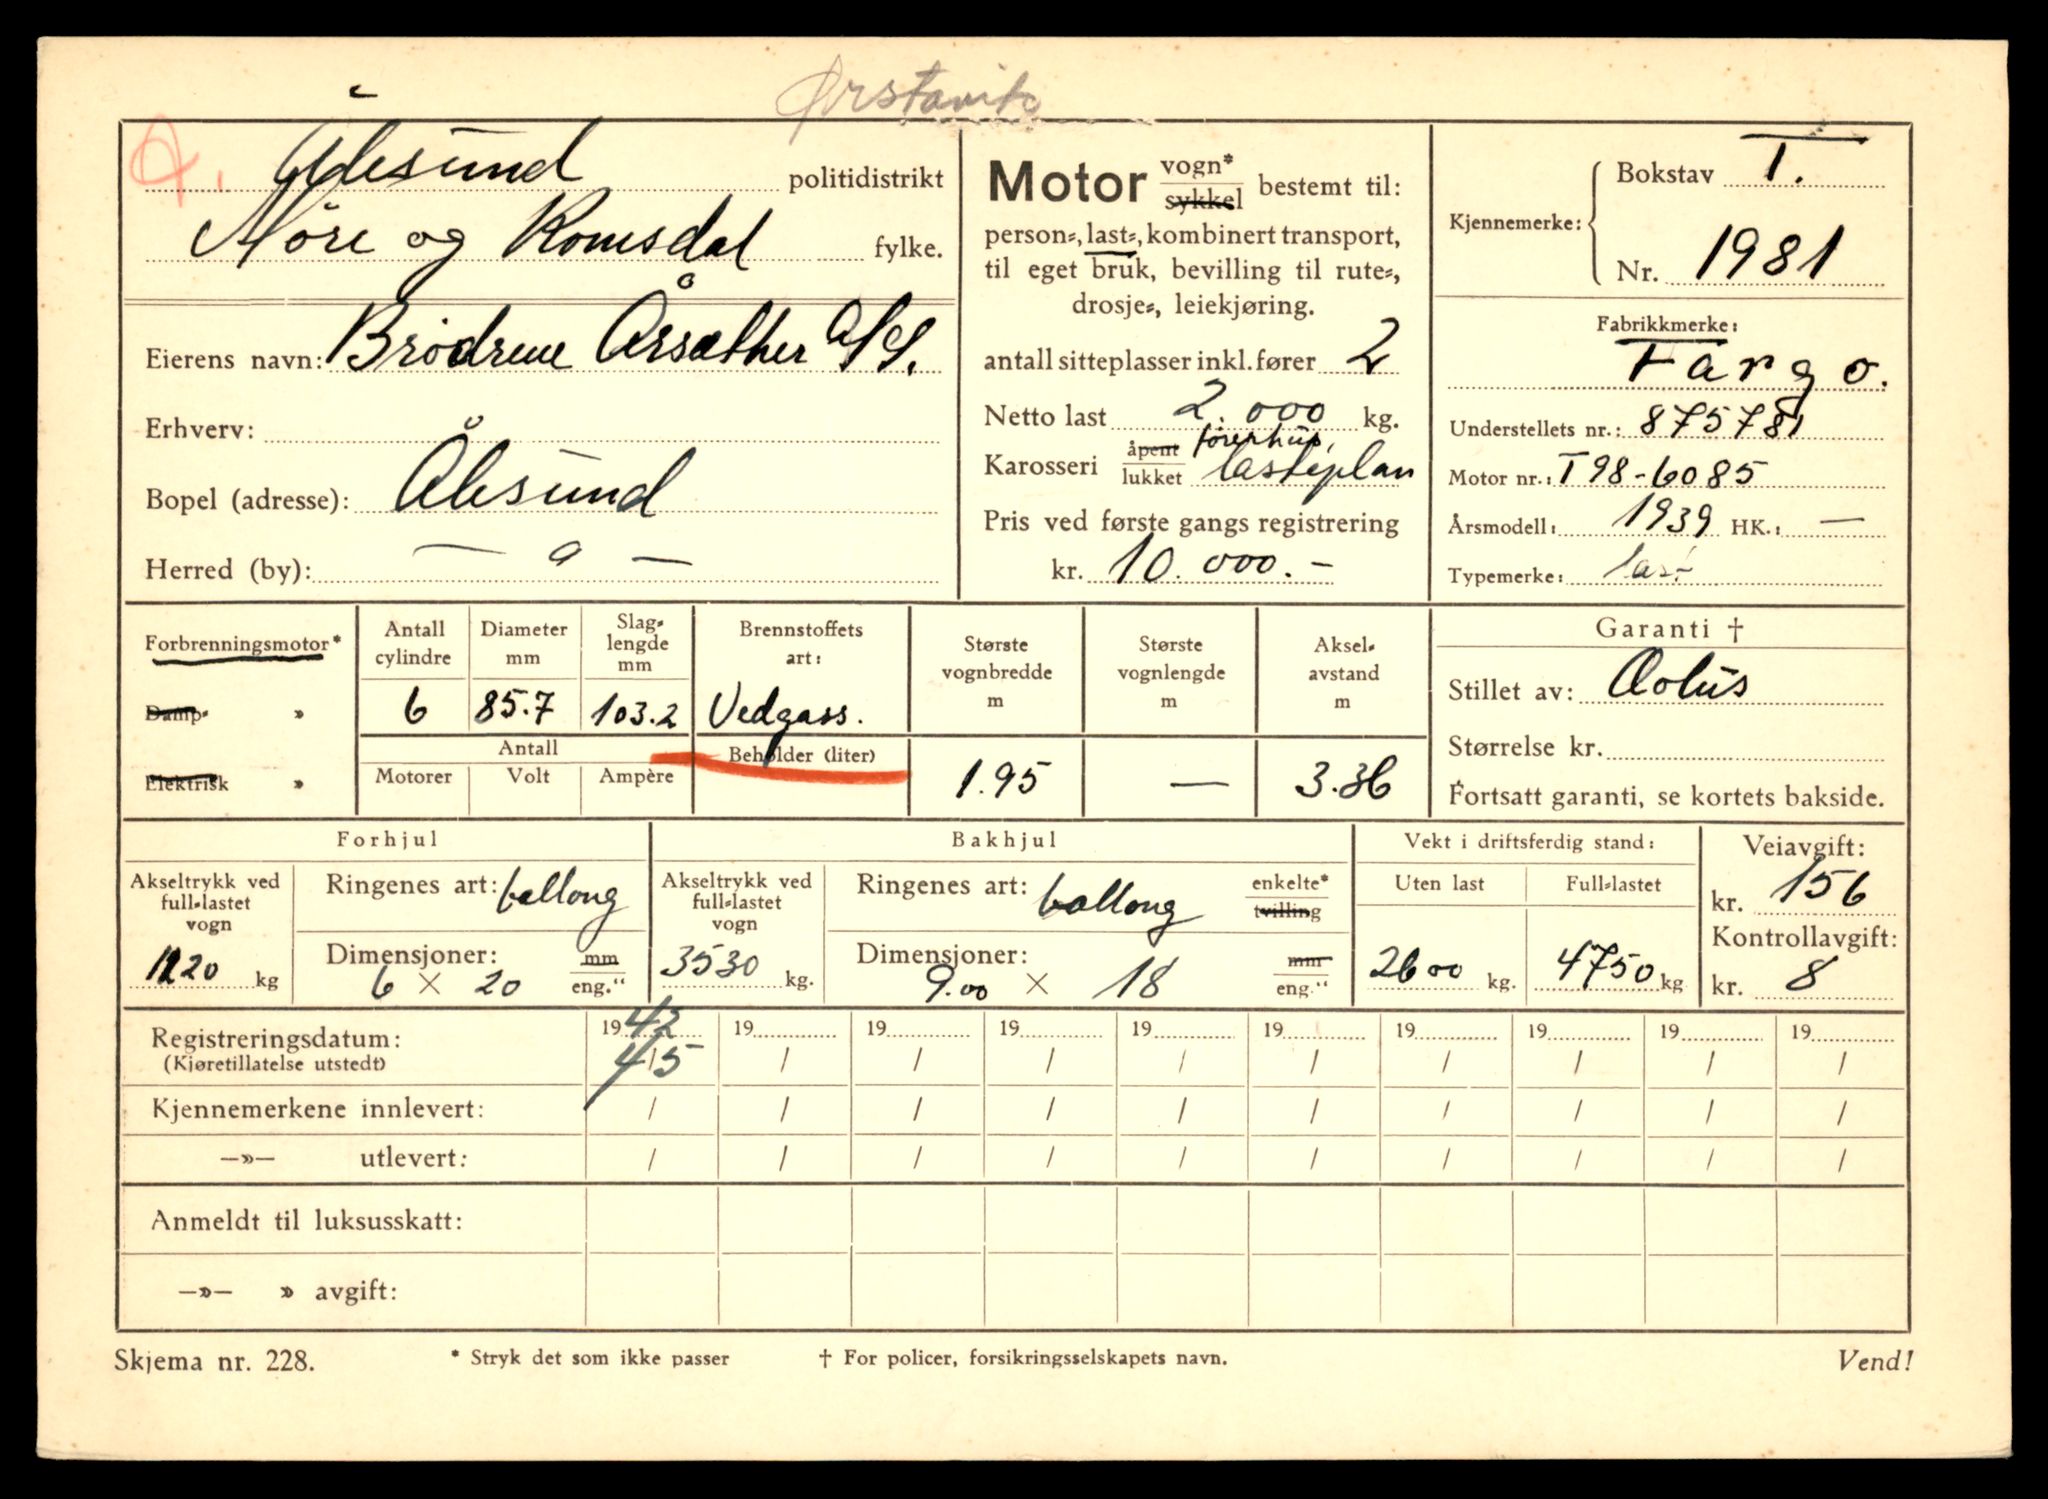 Ørstavik
Ålesund politidistrikt
Möre og Romsdal fylke.
Eierens navn: Brödrene Årsæther A/S.
Erhverv:
Bopel (adresse): Ålesund
Herred (by): — a —
Motor vogn* sykkel bestemt til:
person-, last-, kombinert transport,
til eget bruk, bevilling til rute-,
drosje-, leiekjøring.
antall sitteplasser inkl. fører 2
Netto last 2.000 kg.
Karosseri åpent lukket førerhus, lasteplan
Pris ved første gangs registrering
kr. 10.000.-
Kjennemerke: Bokstav T.
Nr. 1981
Fabrikkmerke:
Fargo.
Understellets nr.: 875781
Motor nr.: T98-6085
Årsmodell: 1939 HK.: —
Typemerke: last
Forbrenningsmotor*
Damp- »
Elektrisk »
Antall cylindre 6
Diameter mm 85.7
Slag-lengde mm 103.2
Antall
Motorer Volt Ampère
Brennstoffets art:
Vedgass.
Beholder (liter)
Største vognbredde m 1.95
Største vognlengde m —
Aksel-avstand m 3.36
Garanti †
Stillet av: Aolus
Størrelse kr.
Fortsatt garanti, se kortets bakside.
Forhjul
Akseltrykk ved full-lastet vogn 1220 kg
Ringenes art: ballong
Dimensjoner: 6 × 20 mm eng."
Bakhjul
Akseltrykk ved full-lastet vogn 3530 kg.
Ringenes art: ballong enkelte* tvilling
Dimensjoner: 9.00 × 18 mm eng."
Vekt i driftsferdig stand:
Uten last 2600 kg.
Full-lastet 4750 kg
Veiavgift:
kr. 156
Kontrollavgift:
kr. 8
Registreringsdatum: 1942 19 19 19 19 19 19 19 19 19
(Kjøretillatelse utstedt) 4/5 / / / / / / / / /
Kjennemerkene innlevert: / / / / / / / / / /
—»— utlevert: / / / / / / / / / /
Anmeldt til luksusskatt:
—»— » avgift:
Skjema nr. 228. * Stryk det som ikke passer † For policer, forsikringsselskapets navn. Vend!